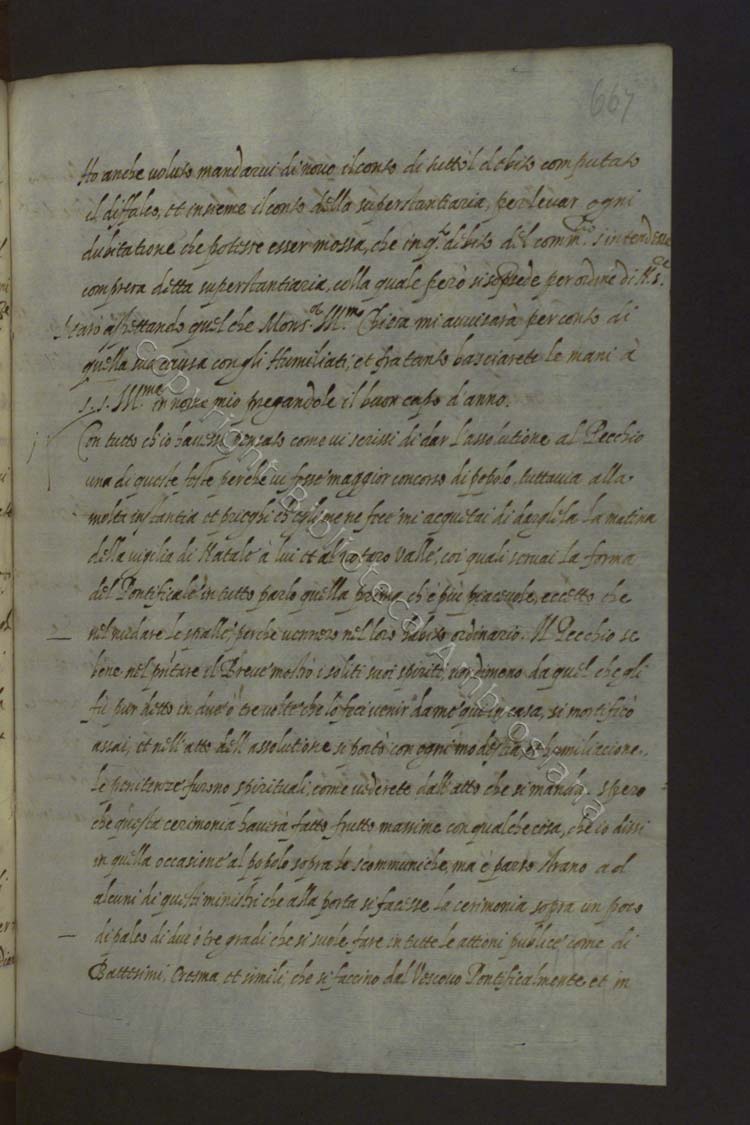 667
Ho anche voluto mandarvi di novo il conto di tutto'l debito computato
il diffalco, et insieme il conto della superstantiaria, per levar ogni
dubitatione che potesse esser mossa, che in q.to debito del comm.rio s'intendesse
compresa detta superstantiaria, colla quale però si soprasede per ordine di N. S.re
Starò aspettando quel che Mons.or Ill.mo Chiesa mi avvisarà per conto di
quella sua causa con gli Humiliati, et fra tanto basciarete le mani à
S. S. Ill.ma in nome mio pregandole il buon capo d'anno.
Con tutto ch'io havessi pensato come vi scrissi di dar l'assolutione al Pecchio
una di queste feste perche vi fosse maggior concorso di popolo, tuttavia alla
molta instantia et prieghi ch'egli me ne fece mi acquetai di dargliela la matina
della vigilia di Natale à lui et al Notaro Valle, coi quali servai la forma
del Pontificale in tutto parlo quella prima ch'è più piacevole, eccetto che
nel nudare le spalle, perche vennero nel loro habito ordinario. Il Pecchio se
bene nel p'ntare il Breve mostrò i soliti suoi spiriti, nondimeno da quel che gli
fù pur detto in due ò tre volte che lo feci venir da me quì in casa, si mortificò
assai, et nell'atto dell'assolutione si portò con ogni modestia, et humiliatione.
Le penitenze furono spirituali, come vederete dall'atto che si manda. Spero
che questa cerimonia haverà fatto frutto massime con qualche cosa, che io dissi
in quella occasione al popolo sopra le scommuniche, ma è parso strano ad
alcuni di questi ministri che alla porta si facesse la cerimonia sopra un poco
di palco di due ò tre gradi che si suole fare in tutte le attioni publice come di
Battesimi, Cresma et simili, che si faccino dal Vescovo Pontificalmente et in
Copyright Biblioteca Ambrosiana